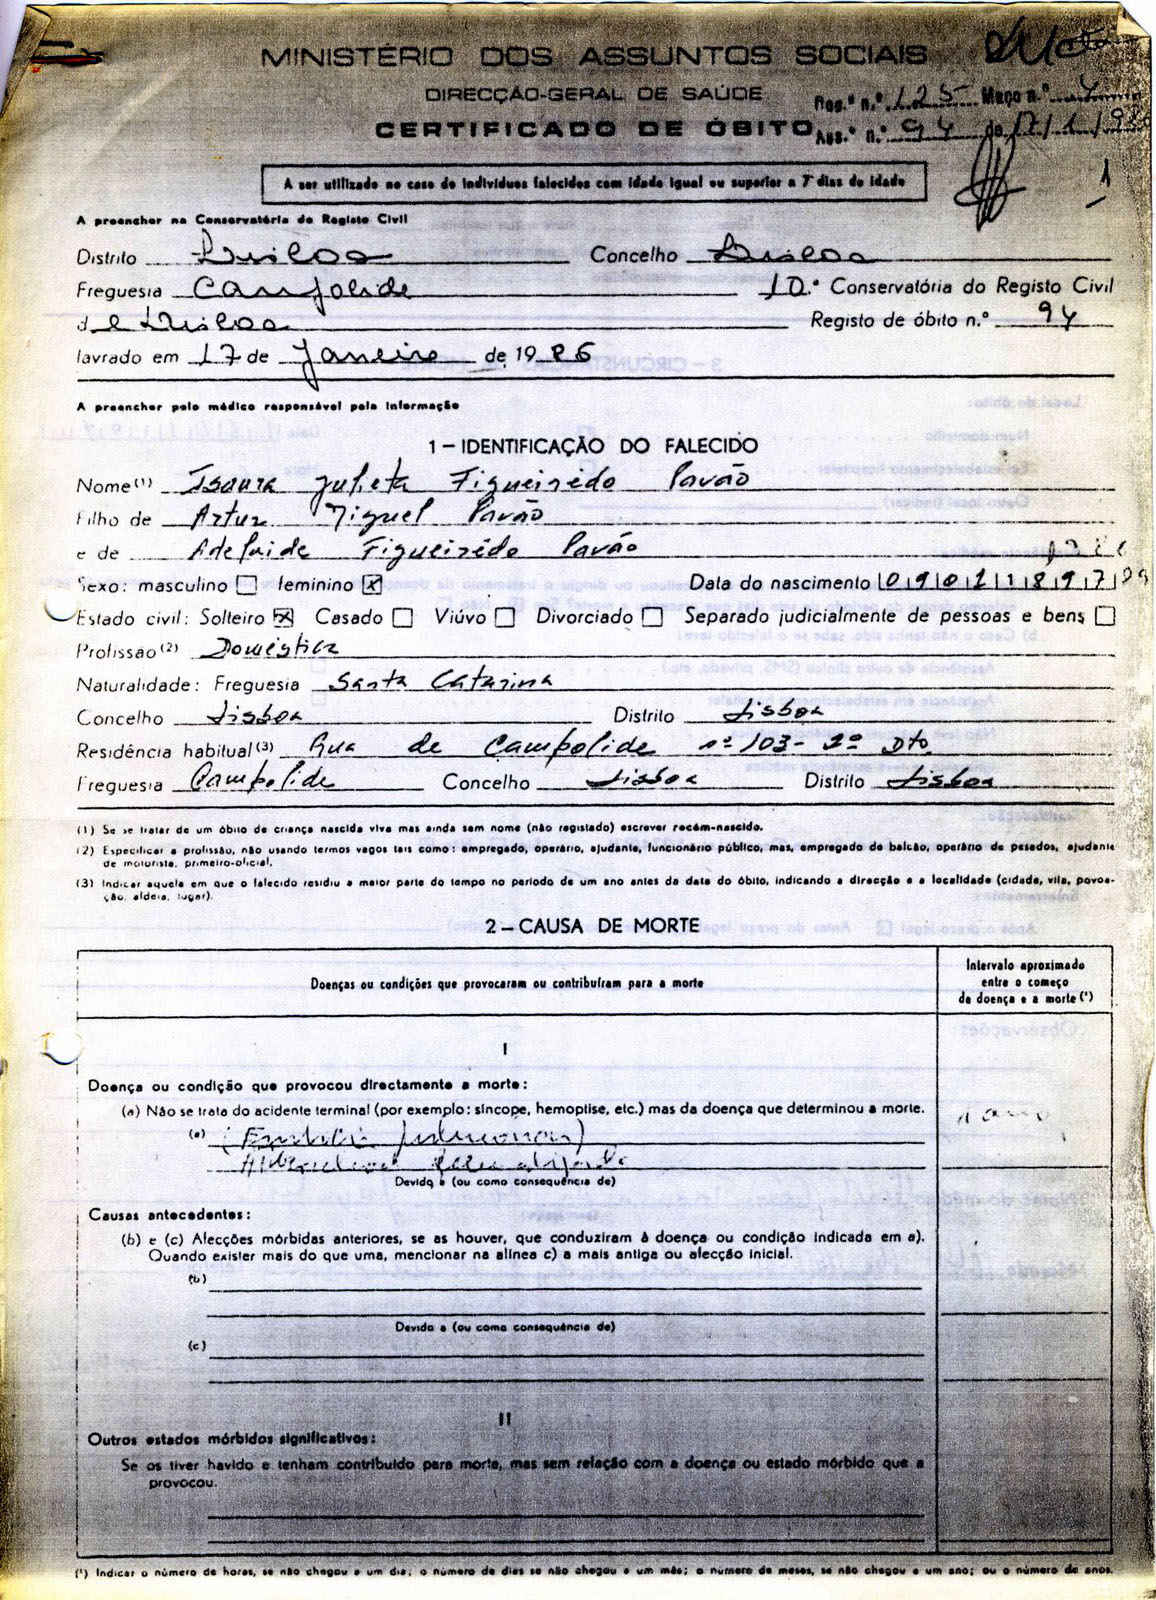 MINISTÉRIO DOS ASSUNTOS SOCIAIS
DIRECÇÃO-GERAL DE SAÚDE
Reg.º n.º 125 Maço n.º 4
CERTIFICADO DE ÓBITO
Ass.º n.º 94 de 17/1/986
A ser utilizado no caso de indivíduos falecidos com idade igual ou superior a 7 dias de idade
1
A preencher na Conservatória do Registo Civil
Distrito Lisboa Concelho Lisboa
Freguesia Campolide 10.ª Conservatória do Registo Civil
de Lisboa Registo de óbito n.º 94
lavrado em 17 de Janeiro de 1986
A preencher pelo médico responsável pela informação
1 – IDENTIFICAÇÃO DO FALECIDO
Nome (1) Isaura Julieta Figueirêdo Pavão
Filho de Artur Miguel Pavão
e de Adelaide Figueirêdo Pavão
Sexo: masculino feminino x Data do nascimento 09021897
Estado civil: Solteiro x Casado Viúvo Divorciado Separado judicialmente de pessoas e bens
Profissão (2) Doméstica
Naturalidade: Freguesia Santa Catarina
Concelho Lisboa Distrito Lisboa
Residência habitual (3) Rua de Campolide nº 103 - 2º Dto
Freguesia Campolide Concelho Lisboa Distrito Lisboa
(1) Se se tratar de um óbito de criança nascida viva mas ainda sem nome (não registado) escrever recém-nascido.
(2) Especificar a profissão, não usando termos vagos tais como: empregado, operário, ajudante, funcionário público, mas, empregado de balcão, operário de pesados, ajudante
de motorista, primeiro-oficial.
(3) Indicar aquela em que o falecido residiu a maior parte do tempo no período de um ano antes da data do óbito, indicando a direcção e a localidade (cidade, vila, povoa-
ção, aldeia, lugar).
2 – CAUSA DE MORTE
Doenças ou condições que provocaram ou contribuíram para a morte
Intervalo aproximado
entre o começo
da doença e a morte (*)
I
Doença ou condição que provocou directamente a morte:
(a) Não se trata do acidente terminal (por exemplo: síncope, hemoptise, etc.) mas da doença que determinou a morte.
(a) (Embolia pulmonar)
Devida a (ou como consequência de)
Causas antecedentes:
(b) e (c) Afecções mórbidas anteriores, se as houver, que conduziram à doença ou condição indicada em a).
Quando exister mais do que uma, mencionar na alínea c) a mais antiga ou afecção inicial.
(b)
Devida a (ou como consequência de)
(c)
II
Outros estados mórbidos significativos:
Se os tiver havido e tenham contribuído para morte, mas sem relação com a doença ou estado mórbido que a
provocou.
(*) Indicar o número de horas, se não chegou a um dia; o número de dias se não chegou a um mês; o número de meses, se não chegou a um ano; ou o número de anos.